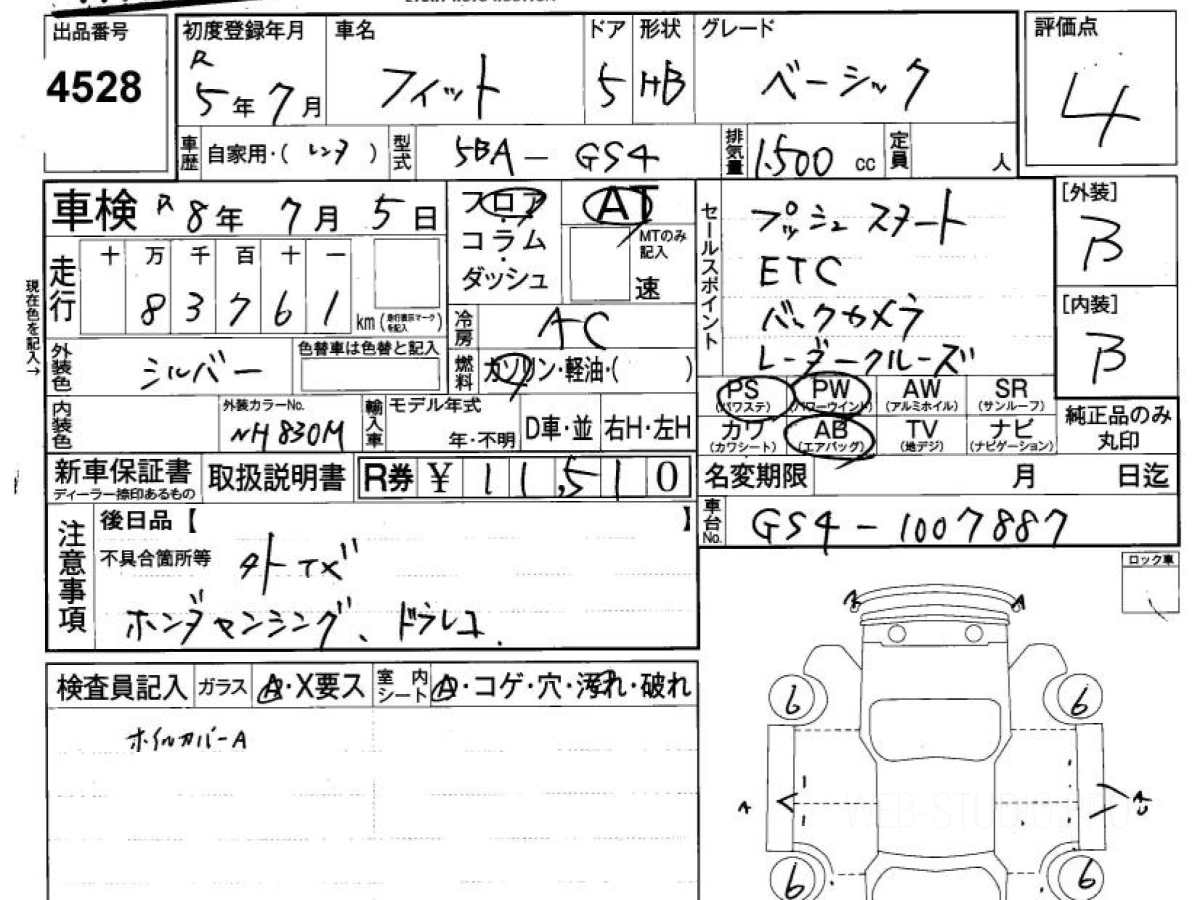 出品番号 初度登録年月 車名 ドア 形状 グレード 評価点
4528 R 5年 7月 フィット 5 HB ベーシック 4
車歴 自家用・( レンタ ) 型式 5BA-GS4 排気量 1,500 cc 定員 人
車検 R 8年 7月 5日 フロア AT セールスポイント プッシュスタート [外装] B
コラム MTのみ記入 ETC
ダッシュ 速 バックカメラ [内装] B
現在色を記入→
走行 十 万 千 百 十 一
8 3 7 6 1 km (走行表示マークを記入) 冷房 AC レーダークルーズ
外装色 シルバー 色替車は色替と記入 燃料 ガソリン・軽油・( )
PS (パワステ) PW (パワーウインド) AW (アルミホイル) SR (サンルーフ) 純正品のみ丸印
カワ (カワシート) AB (エアバッグ) TV (地デジ) ナビ (ナビゲーション)
内装色 外装カラーNo. NH830M 輸入車 モデル年式 年・不明 D車・並 右H・左H
新車保証書 ディーラー捺印あるもの 取扱説明書 R券 ¥ 11,510 名変期限 月 日迄
車台No. GS4-1007887
注意事項 後日品【 】
不具合箇所等 外TX
ホンダセンシング、ドラレコ.
ロック車
検査員記入 ガラス A・X要ス 室内シート A・コゲ・穴・汚れ・破れ
ホイルカバーA
A A
6 6
A A
6 6
WEB-STUDIO.PRO